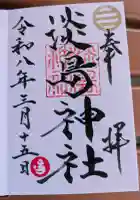 奉拝
淡島神社
令和八年三月十五日